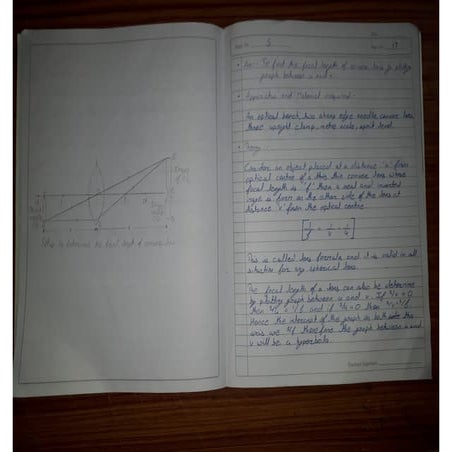 Setup to determine the focal length of convex lens
5
17
• Aim:- To find the focal length of convex lens by plotting
graph between u and v.
• Apparatus and Material required:-
An optical bench, two sharp edge needle, convex lens,
three upright clamp, metre scale, spirit level.
• Theory:-
Consider an object placed at a distance 'u' from
optical centre of a thin convex lens whose
focal length is 'f' then a real and inverted
image is form on the other side of the lens at
distance 'v' from the optical centre.
[1/f = 1/v - 1/u]
This is called lens formula and it is valid in all
situation for any spherical lens.
The focal length of a lens can also be determine
by plotting graph between u and v. If 1/v = 0
then 1/u = 1/f and if 1/u = 0 then 1/v = 1/f.
Hence the intercept of the graph on both side the
axis are 1/f therefore the graph between u and
v will be a hyperbola.
Teacher's Signature